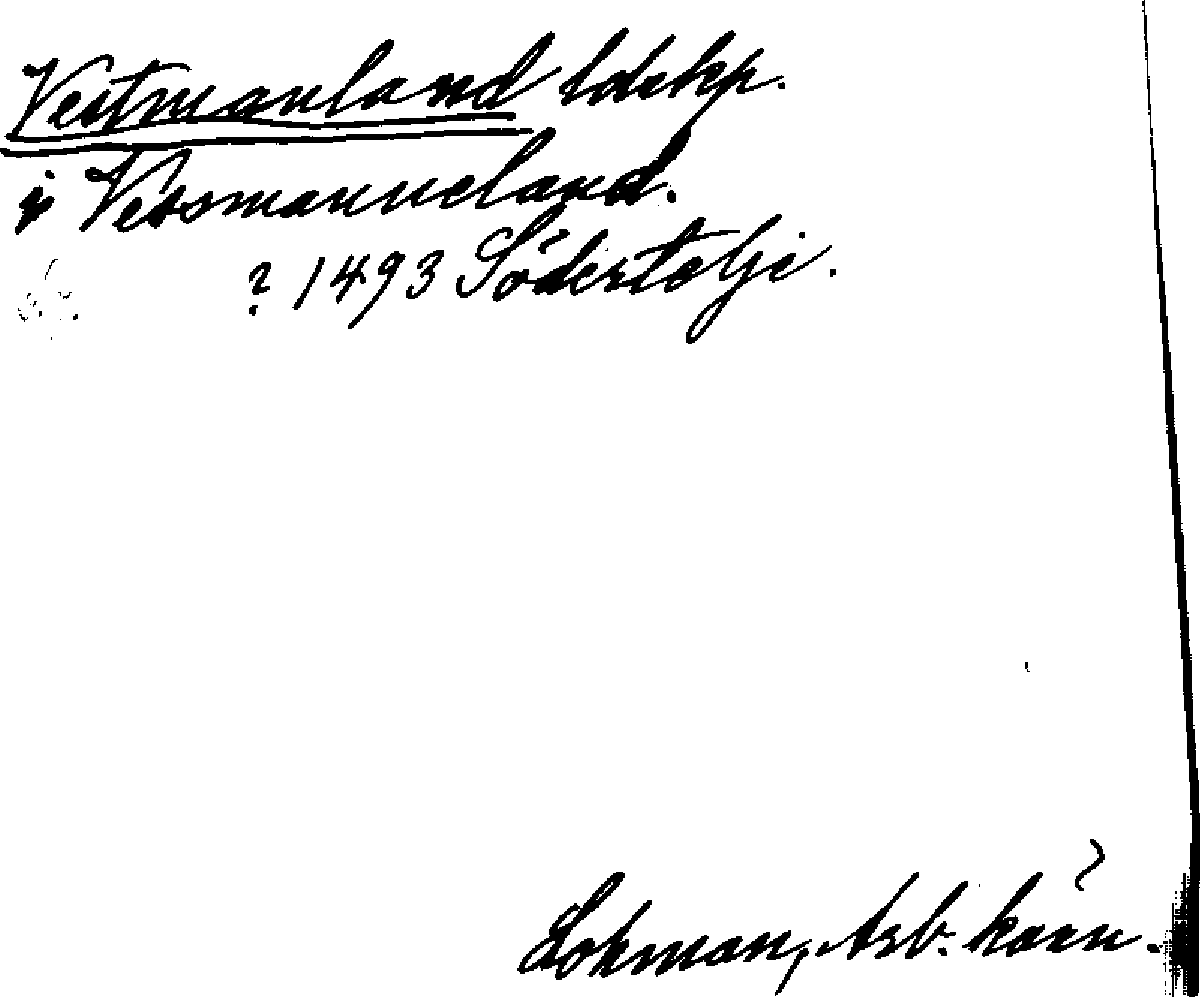 Vestmanland ldskp.
i Vessmanneland.
? 1493 Södertelji.
Lohman, Arb. känn.